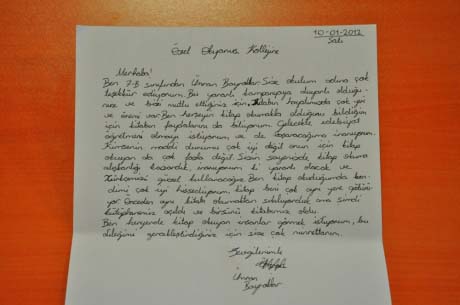 10-01-2012
Salı
Özel Okyanus Kolejine
Merhaba!
Ben 7-B sınıfından Ümran Bayraktar. Size okulum adına çok
teşekkür ediyorum. Bu yararlı kampanyaya duyarlı olduğu-
nuz ve bizi mutlu ettiğiniz için. Kitabın hayatımızda çok yeri
ve önemi var. Ben herşeyin kitap okumakla olduğunu bildiğim
için kitabın faydalarını da biliyorum. Gelecekte edebiyat
öğretmeni olmayı istiyorum, ve de başaracağıma inanıyorum.
Kimsenin maddi durumu çok iyi değil onun için kitap
okuyan da çok fazla değil. Sizin sayenizde kitap okuma
alışkanlığı kazandık, inanıyorum ki yararlı olacak ve
Türkçemizi güzel kullanacağız. Ben kitap okuduğumda ken-
dimi çok iyi hissediyorum, kitap beni çok ayrı yere götürü-
yor. Önceden aynı kitabı okumaktan sıkılıyorduk ama şimdi
kütüphanemiz açıldı ve birsürü kitabımız oldu.
Ben heryerde kitap okuyan insanlar görmek istiyorum, bu
dileğimi gerçekleştirdiğiniz için size çok minnettarım.
Sevgilerimle
Ümran
Bayraktar